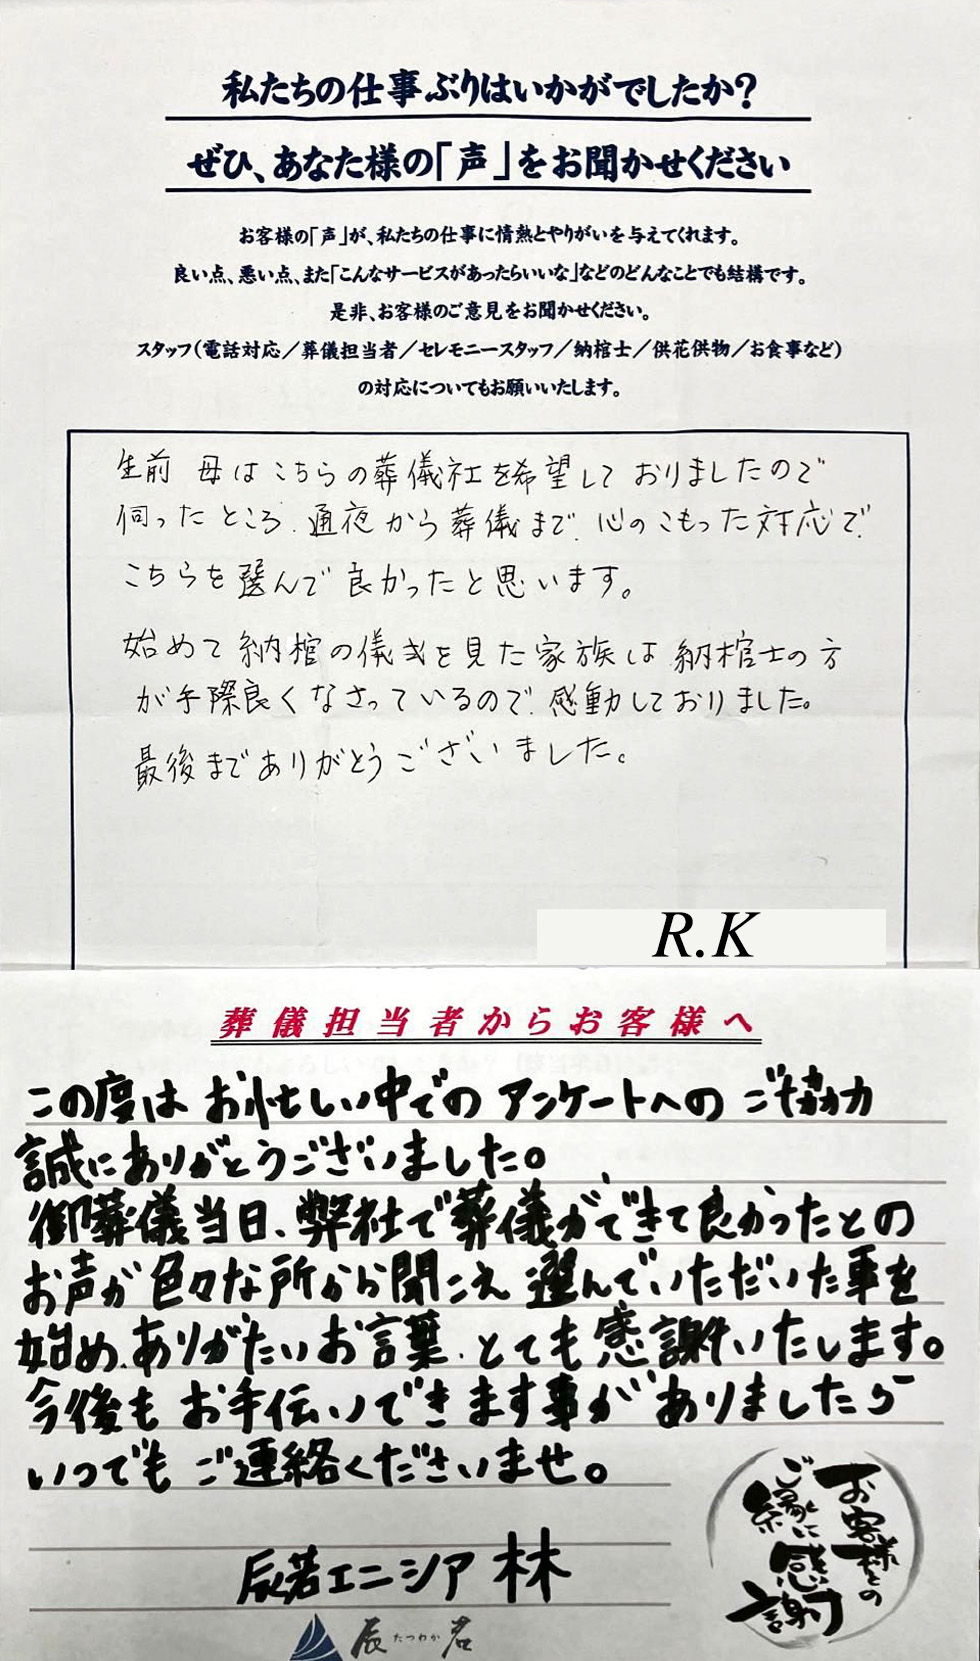 私たちの仕事ぶりはいかがでしたか？
ぜひ、あなた様の「声」をお聞かせください
お客様の「声」が、私たちの仕事に情熱とやりがいを与えてくれます。
良い点、悪い点、また「こんなサービスがあったらいいな」などのどんなことでも結構です。
是非、お客様のご意見をお聞かせください。
スタッフ（電話対応／葬儀担当者／セレモニースタッフ／納棺士／供花供物／お食事など）
の対応についてもお願いいたします。
生前 母はこちらの葬儀社を希望しておりましたので
伺ったところ、通夜から葬儀まで、心のこもった対応で、
こちらを選んで良かったと思います。
始めて納棺の儀式を見た家族は納棺士の方
が手際良くなさっているので、感動しておりました。
最後までありがとうございました。
R.K
葬儀担当者からお客様へ
この度はお忙しい中でのアンケートへのご協力
誠にありがとうございました。
御葬儀当日、弊社で葬儀ができて良かったとの
お声が色々な所から聞こえ選んでいただいた事を
始め、ありがたいお言葉、とても感謝いたします。
今後もお手伝いできます事がありましたら
いつでもご連絡くださいませ。
辰若エニシア 林
お客様との
ご縁に
感謝
辰 たつわか 若